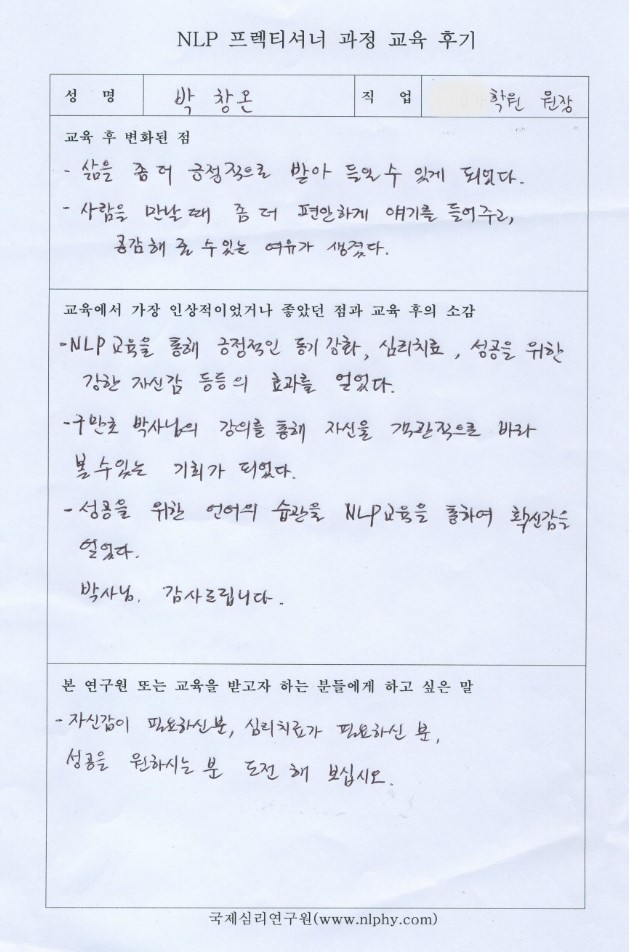 NLP 프렉티셔너 과정 교육 후기
성 명 박 창온 직 업 학원 원장
교육 후 변화된 점
- 삶을 좀 더 긍정적으로 받아 들일 수 있게 되었다.
- 사람을 만날 때 좀 더 편안하게 얘기를 들어주고,
공감해 줄 수 있는 여유가 생겼다.
교육에서 가장 인상적이었거나 좋았던 점과 교육 후의 소감
- NLP 교육을 통해 긍정적인 동기 강화, 심리치료, 성공을 위한
강한 자신감 등등의 효과를 얻었다.
- 구만호 박사님의 강의를 통해 자신을 객관적으로 바라
볼 수 있는 기회가 되었다.
- 성공을 위한 언어의 습관을 NLP 교육을 통하여 확신감을
얻었다.
박사님. 감사드립니다.
본 연구원 또는 교육을 받고자 하는 분들에게 하고 싶은 말
- 자신감이 필요하신분, 심리치료가 필요하신 분,
성공을 원하시는 분 도전 해 보십시오.
국제심리연구원(www.nlphy.com)